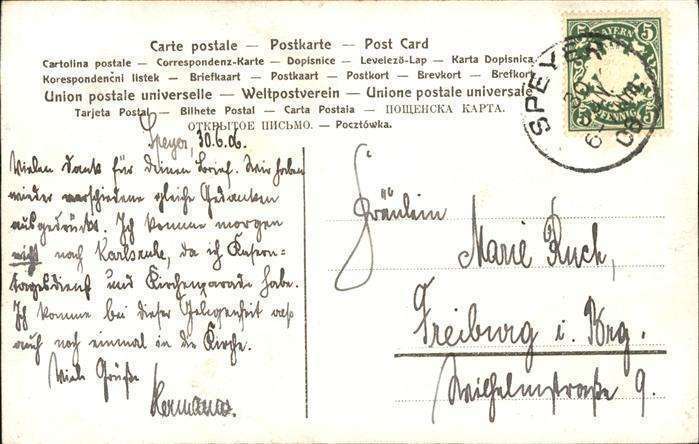 Carte postale — Postkarte — Post Card
Cartolina postale — Correspondenz-Karte — Dopisnice — Levelező-Lap — Karta Dopisnica
Korespondenční listek — Briefkaart — Postkaart — Postkort — Brevkort — Brefkort
Union postale universelle — Weltpostverein — Unione postale universale
Tarjeta Postal — Bilhete Postal — Carta Postala — ПОЩЕНСКА КАРТА.
ОТКРЫТОЕ ПИСЬМО. — Pocztówka.
BAYERN
5 5
5 5
PFENNIG
SPEYER
30
Speyer, 30.6.06.
Vielen Dank für Deinen Brief. Wir haben
wieder verschiedene gleiche Gedanken
ausgedrückt. Ich komme morgen
nicht nach Karlsruhe, da ich Kasern-
tagesdienst und Kirchenparade habe.
Ich komme bei dieser Gelegenheit
auch noch einmal in die Kirche.
Viele Grüße
Hermann.
Fräulein
Marie Ruch,
Freiburg i. Brg.
Wilhelmstraße 9.